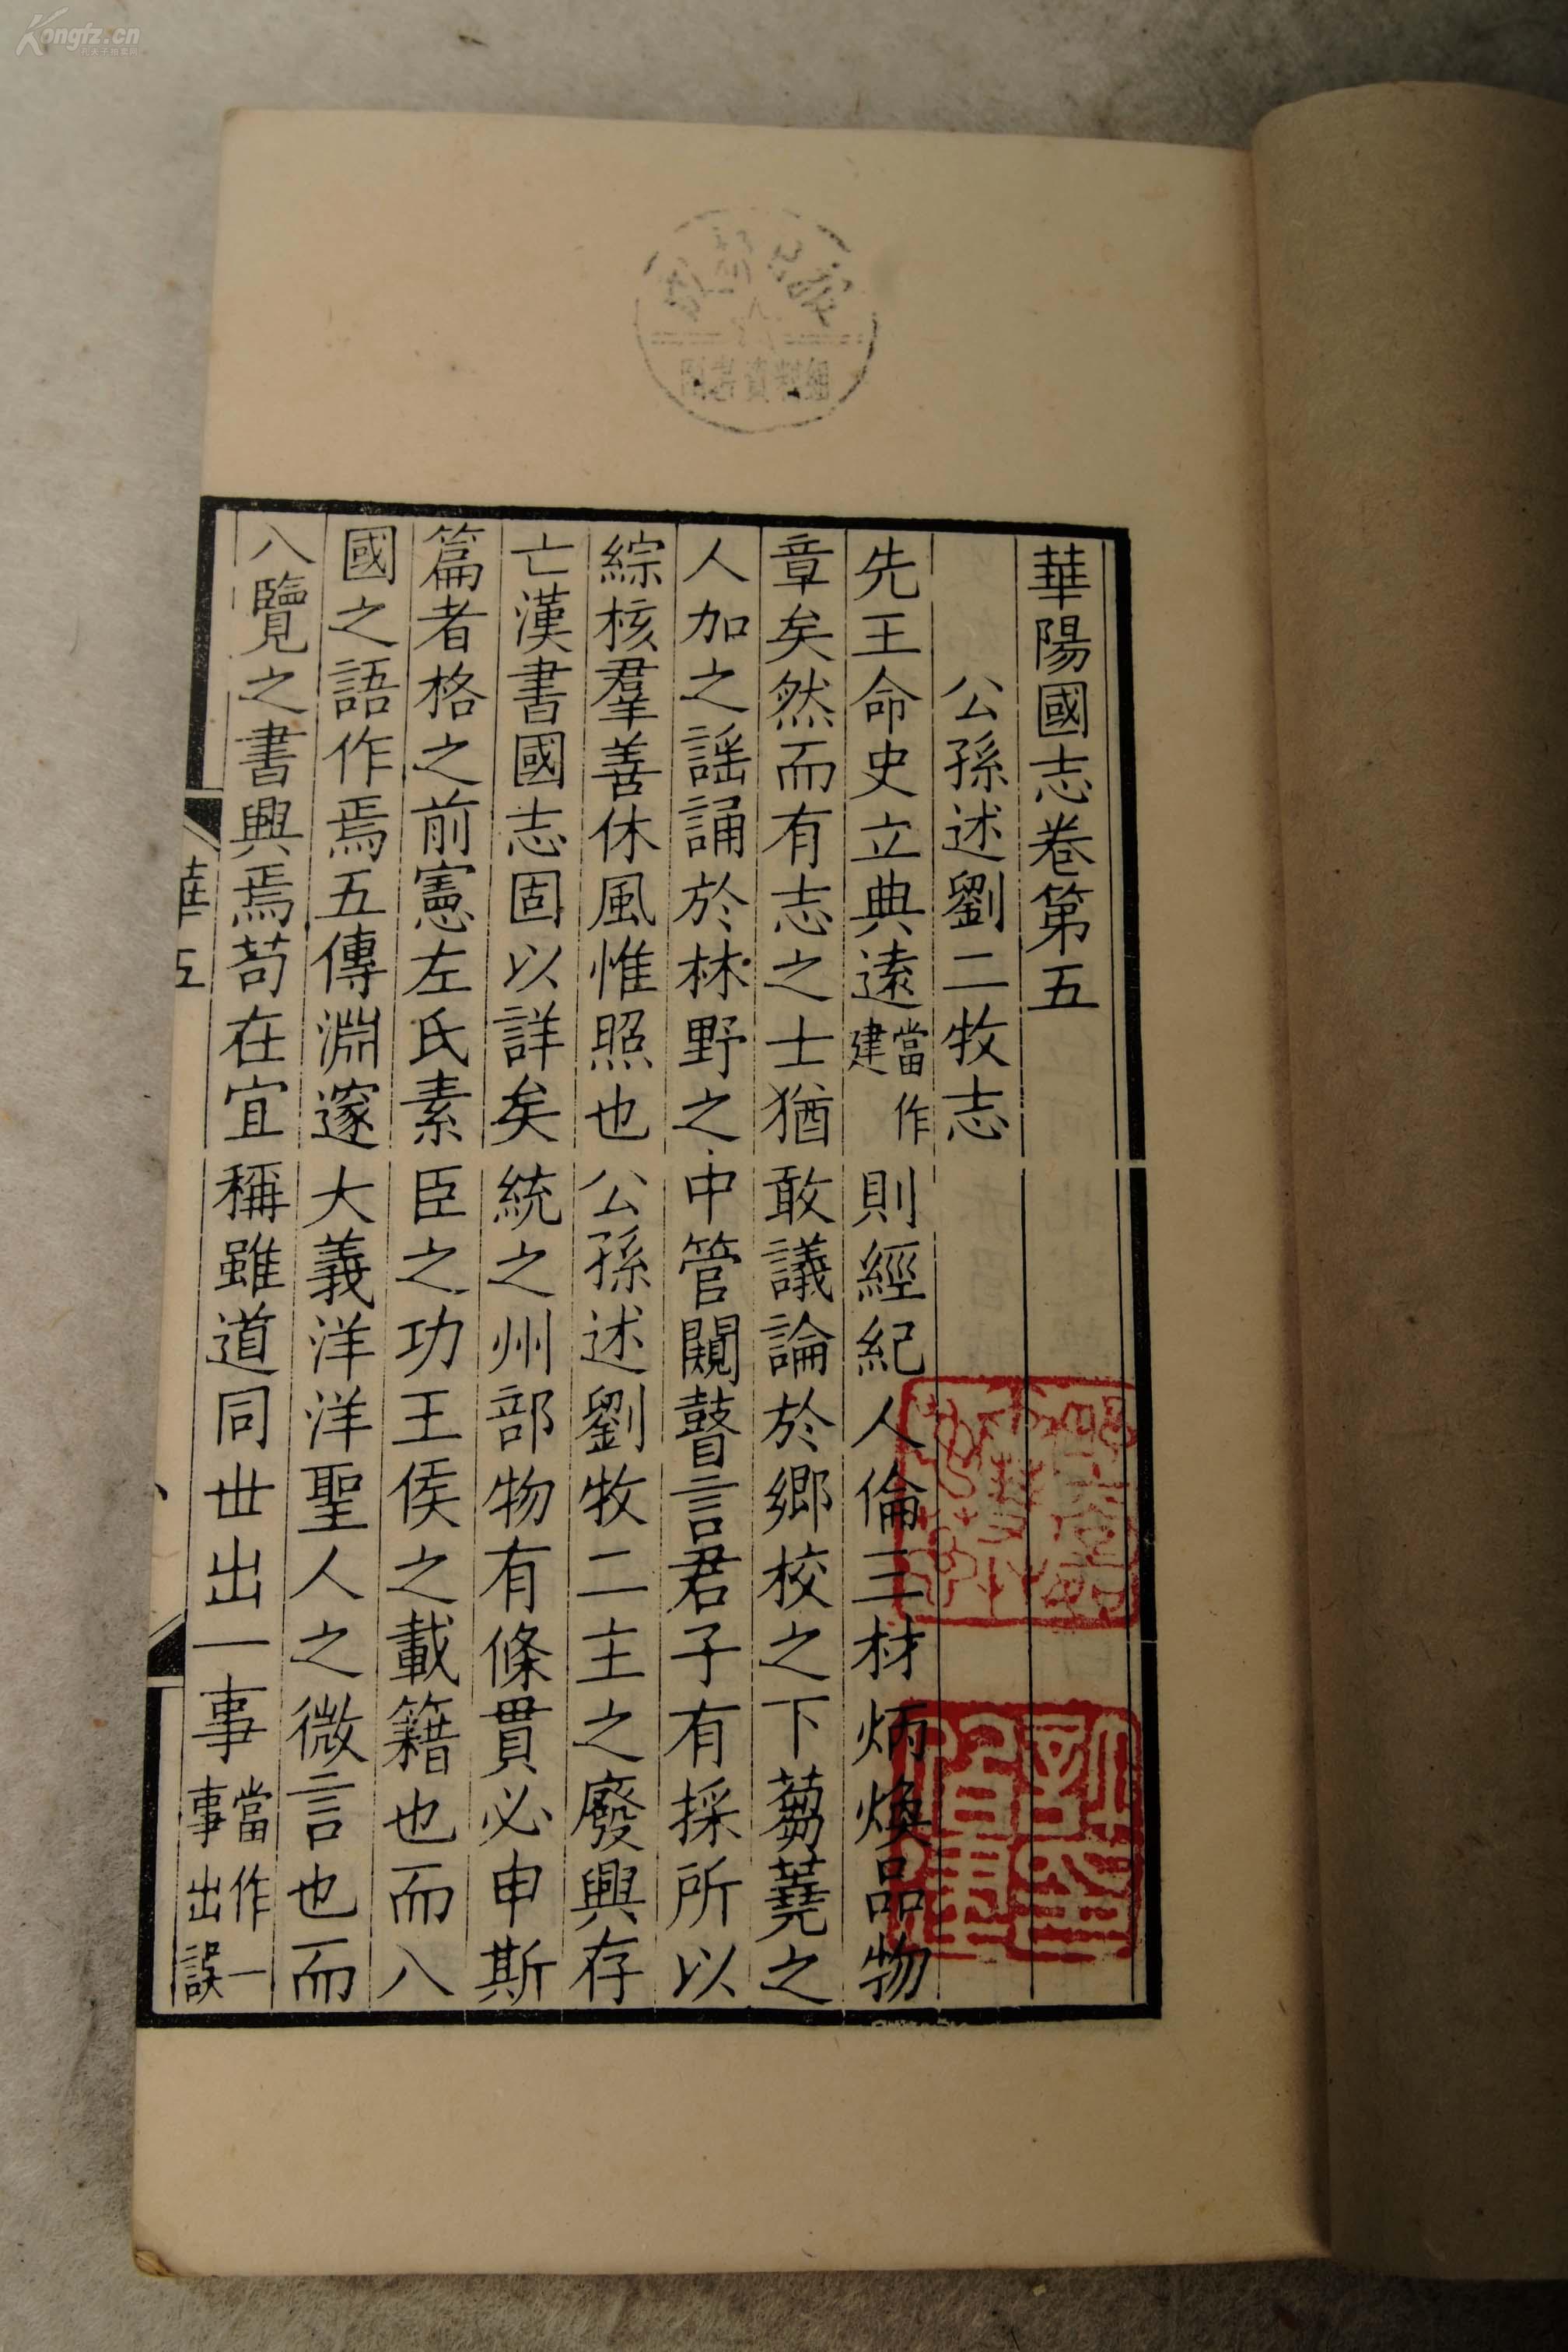 華陽國志卷第五
公孫述劉二牧志
先王命史立典遠當作建則經紀人倫三材炳煥品物
章矣然而有志之士猶敢議論於鄉校之下蒭蕘之
人加之謡誦於林野之中管闚瞽言君子有採所以
綜核羣善休風惟照也公孫述劉牧二主之廢興存
亡漢書國志固以詳矣統之州部物有條貫必申斯
篇者格之前憲左氏素臣之功王侯之載籍也而八
國之語作焉五傳淵邃大義洋洋聖人之微言也而
八覽之書興焉苟在宜稱雖道同世出一事當作一事出誤
華五
Kongfz.cn